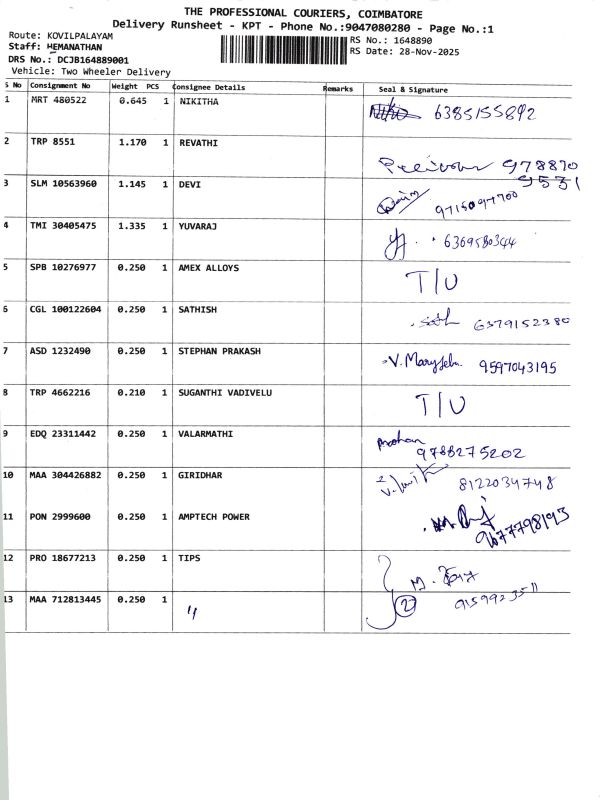 THE PROFESSIONAL COURIERS, COIMBATORE
Delivery Runsheet - KPT - Phone No.:9047080280 - Page No.:1
Route: KOVILPALAYAM
Staff: HEMANATHAN
DRS No.: DCJB164889001
Vehicle: Two Wheeler Delivery
RS No.: 1648890
RS Date: 28-Nov-2025
S No Consignment No Weight PCS Consignee Details Remarks Seal & Signature
1 MRT 480522 0.645 1 NIKITHA 6385155892
2 TRP 8551 1.170 1 REVATHI 978870
9531
3 SLM 10563960 1.145 1 DEVI 9715097700
4 TMI 30405475 1.335 1 YUVARAJ 6369580344
5 SPB 10276977 0.250 1 AMEX ALLOYS T/U
6 CGL 100122604 0.250 1 SATHISH 6379152380
7 ASD 1232490 0.250 1 STEPHAN PRAKASH 9597043195
8 TRP 4662216 0.210 1 SUGANTHI VADIVELU T/U
9 EDQ 23311442 0.250 1 VALARMATHI 9788275202
10 MAA 304426882 0.250 1 GIRIDHAR 8122034748
11 PON 2999600 0.250 1 AMPTECH POWER 9677798193
12 PRO 18677213 0.250 1 TIPS
13 MAA 712813445 0.250 1 〃 2 9159923511